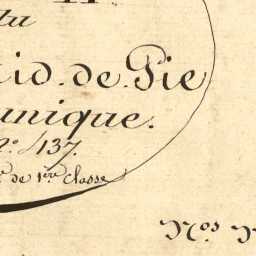 tu
id. de. Pie
unique.
No. 137.
de 1ère classe
Nos.